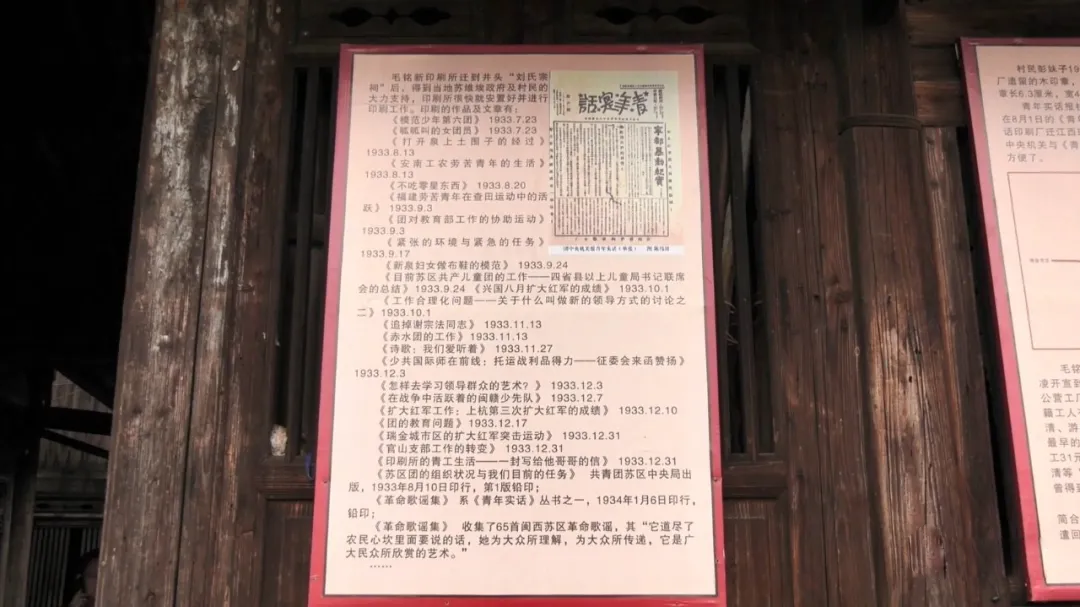 毛铭新印刷所迁到井头“刘氏宗
祠”后，得到当地苏维埃政府及村民的
大力支持，印刷所很快就安置好并进行
印刷工作。印刷的作品及文章有：
《模范少年第六团》 1933.7.23
《呱呱叫的女团员》 1933.7.23
《打开泉上土围子的经过》
1933.8.13
《安南工农劳苦青年的生活》
1933.8.13
《不吃零星东西》 1933.8.20
《福建劳苦青年在查田运动中的活
跃》 1933.9.3
《团对教育部工作的协助运动》
1933.9.3
《紧张的环境与紧急的任务》
1933.9.17
《新泉妇女做布鞋的模范》 1933.9.24
《目前苏区共产儿童团的工作——四省县以上儿童局书记联席
会的总结》 1933.9.24 《兴国八月扩大红军的成绩》 1933.10.1
《工作合理化问题——关于什么叫做新的领导方式的讨论之
二》 1933.10.1
《追掉谢宗法同志》 1933.11.13
《赤水团的工作》 1933.11.13
《诗歌：我们爱听着》 1933.11.27
《少共国际师在前线：托运战利品得力——征委会来函赞扬》
1933.12.3
《怎样去学习领导群众的艺术？》 1933.12.3
《在战争中活跃着的闽赣少先队》 1933.12.7
《扩大红军工作：上杭第三次扩大红军的成绩》 1933.12.10
《团的教育问题》 1933.12.17
《瑞金城市区的扩大红军突击运动》 1933.12.31
《官山支部工作的转变》 1933.12.31
《印刷所的青工生活——一封写给他哥哥的信》 1933.12.31
《苏区团的组织状况与我们目前的任务》 共青团苏区中央局出
版，1933年8月10日印行，第1版铅印；
《革命歌谣集》 系《青年实话》丛书之一，1934年1月6日印行，
铅印；
《革命歌谣集》 收集了65首闽西苏区革命歌谣，其“它道尽了
农民心坎里面要说的话，她为大众所理解，为大众所传递，它是广
大民众所欣赏的艺术。”
……
話實年青
寧都暴動紀實
村民彭妹子19
厂遗留的木印章，
章长6.3厘米，宽4
青年实话报社
在8月1日的《青年
话印刷厂迁江西
中央机关与《青
方便了。
毛铭
凌开宣到
公营工厂
籍工人
清、游
最早的
工31元
清等
曾得到
简合
遣回